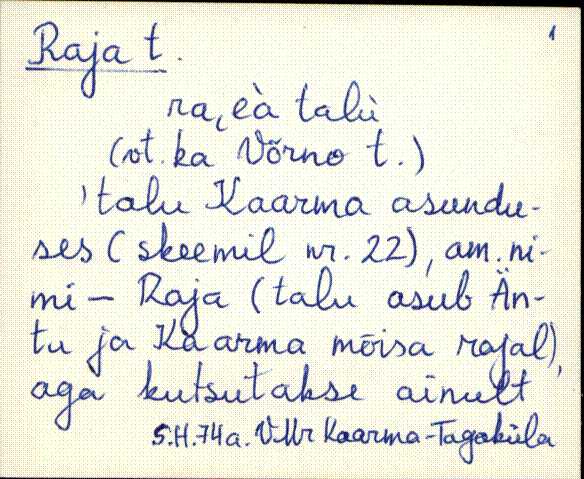 1
Raja t.
ra̮eà talù
(vt. ka Võrno t.)
'talu Kaarma asundu-
ses (skeemil nr. 22), am. ni-
mi — Raja (talu asub Än-
tu ja Kaarma mõisa rajal),
aga kutsutakse ainult
S.H. 74a. V-Mr Kaarma-Tagaküla